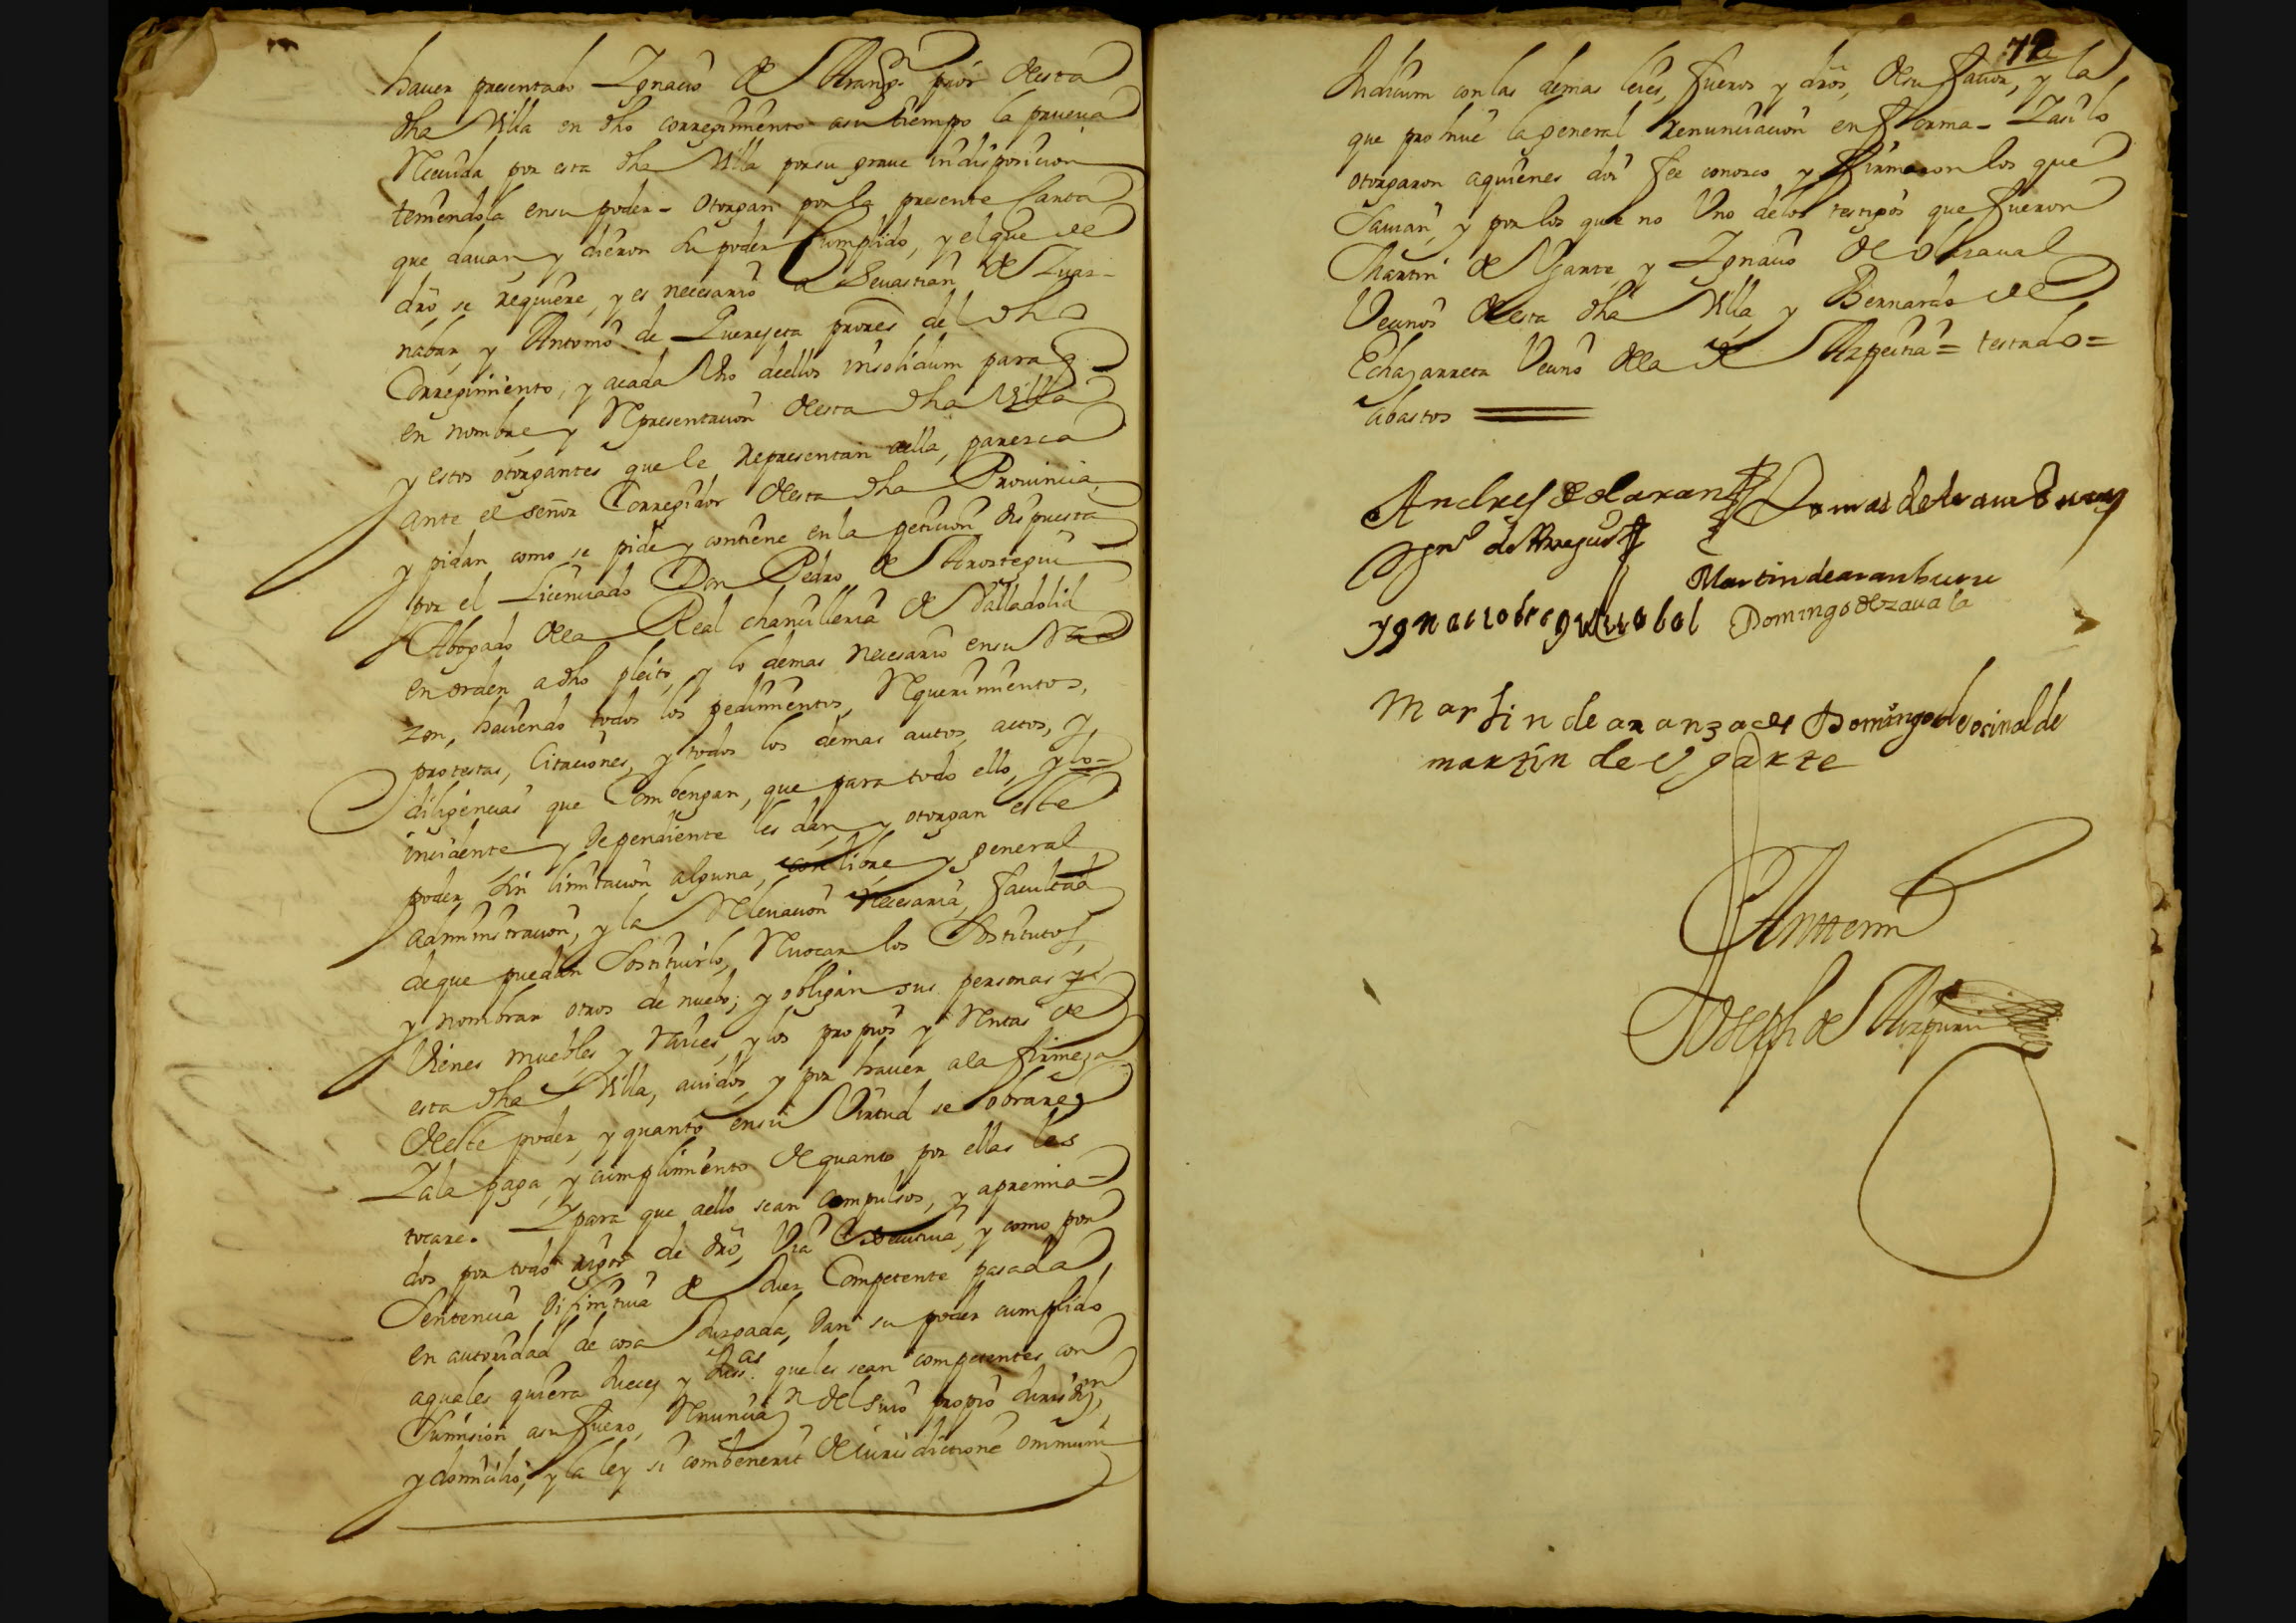 hauer presentado Ignacio de Arang.n pror desta
dha Villa en dho corregimiento asu tiempo la prueua
Receuida por esta dha Villa por su graue indisposicion
teniendola ensu poder - otorgan por la presente Carta
que dauan, y dieron su poder Cumplido, y el que de
dro se requiere, y es necesario a Seuastian de Zuaz-
nabar y Antonio de Querejeta prores del dho
Corregimiento, y acada Vno dellos insolidum para q
en nombre y Representacion desta dha Villa
y estos otorgantes que le representan della, parezca
ante el señor Corregidor desta dha Prouincia,
y pidan como se pide y contiene en la peticion dispuesta
por el Licenciado Don Pedro de Arostegui
Abogado dela Real chancilleria de Valladolid
en orden a dho pleito, y lo demas necesario ensu Ra
zon, haciendo todos los pedimientos, Requerimientos,
protestas, Citaciones, y todos los demas autos, actos, y
diligencias que Combengan, que para todo ello, y lo-
incidente y dependiente les dan, y otorgan este
poder sin limitacion alguna, con libre y general
administracion, y la Releuacion necesaria, facultad
deque puedan Sostituirlo, Reuocar los Sostitutos,
y nombrar otros de nuebo; y obligan sus personas y
Vienes muebles y raices, y los propios y Rentas de
esta dha Villa, auidos, y por hauer ala firmeza
deste poder, y quanto ensu Virtud se obrare,
Y ala paga, y cumplimiento de quanto por ellas les
tocare. Y para que aello sean compulsos, y apremia-
dos por todo rigor de dro, Via executiua, y como por
Sentencia difinitiua de Juez Competente pasada
en autoridad de cosa Juzgada, dan su poder cumplido
aquales quiera Jueces y Juss.as queles sean competentes con
Sumision asu fuero, Renuncia.n del suio propio Jurisd.on,
y domicilio, y la ley si combenerit de iurisdictione omnium
72
Iudicum con las demas leies, fueros y dros, desu fauor, y la
que prohiue la general renunciacion en forma - Y asi lo
otorgaron aquienes doi fee conozco y firmaron los que
Sauian, y por los que no Vno delos testigos que fueron
Martin de Vgarte, y Ignacio de Olazaual
Vecinos desta dha Villa y Bernardo de
Echazarreta Vecino dela de Azpeitia = testado =
abastos
Andres de laran
Domas de Aramburu
Ign.o de Arregui
Martin de aranburu
ygnacio de eguizabal Domingo de zauala
Martin de aranzadi Domingo de ocinalde
martin de Vgarte
Antemi
Joseph de Aizpuru